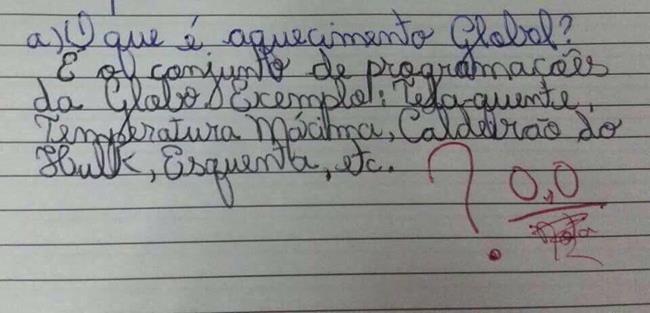 a) O que é aquecimento Global?
É o conjunto de programações
da Globo. Exemplo: Tela-quente,
Temperatura Máxima, Caldeirão do
Hulk, Esquenta, etc.
?
0,0
Nota